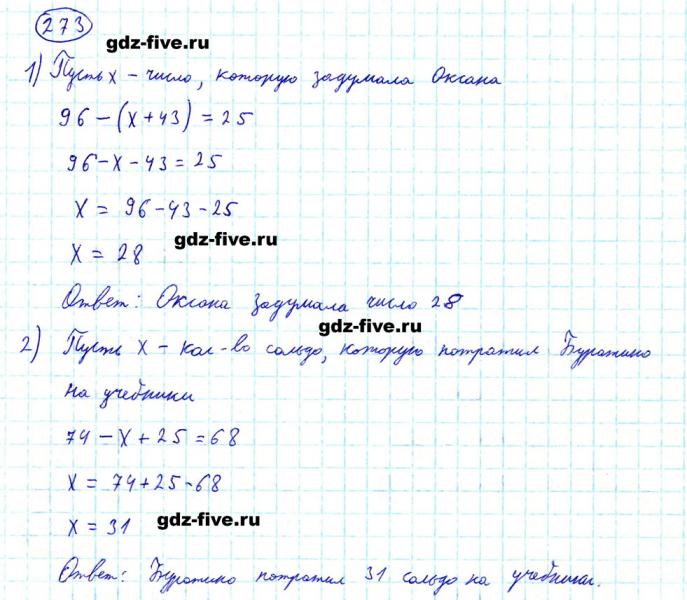 273
gdz-five.ru
1) Пусть х – число, которую задумала Оксана
96 – (х + 43) = 25
96 – х – 43 = 25
х = 96 – 43 – 25
х = 28
gdz-five.ru
Ответ: Оксана задумала число 28
gdz-five.ru
2) Пусть х – кол-во сольдо, которую потратил Буратино
на учебники
74 – х + 25 = 68
х = 74 + 25 - 68
х = 31
gdz-five.ru
Ответ: Буратино потратил 31 сольдо на учебники.